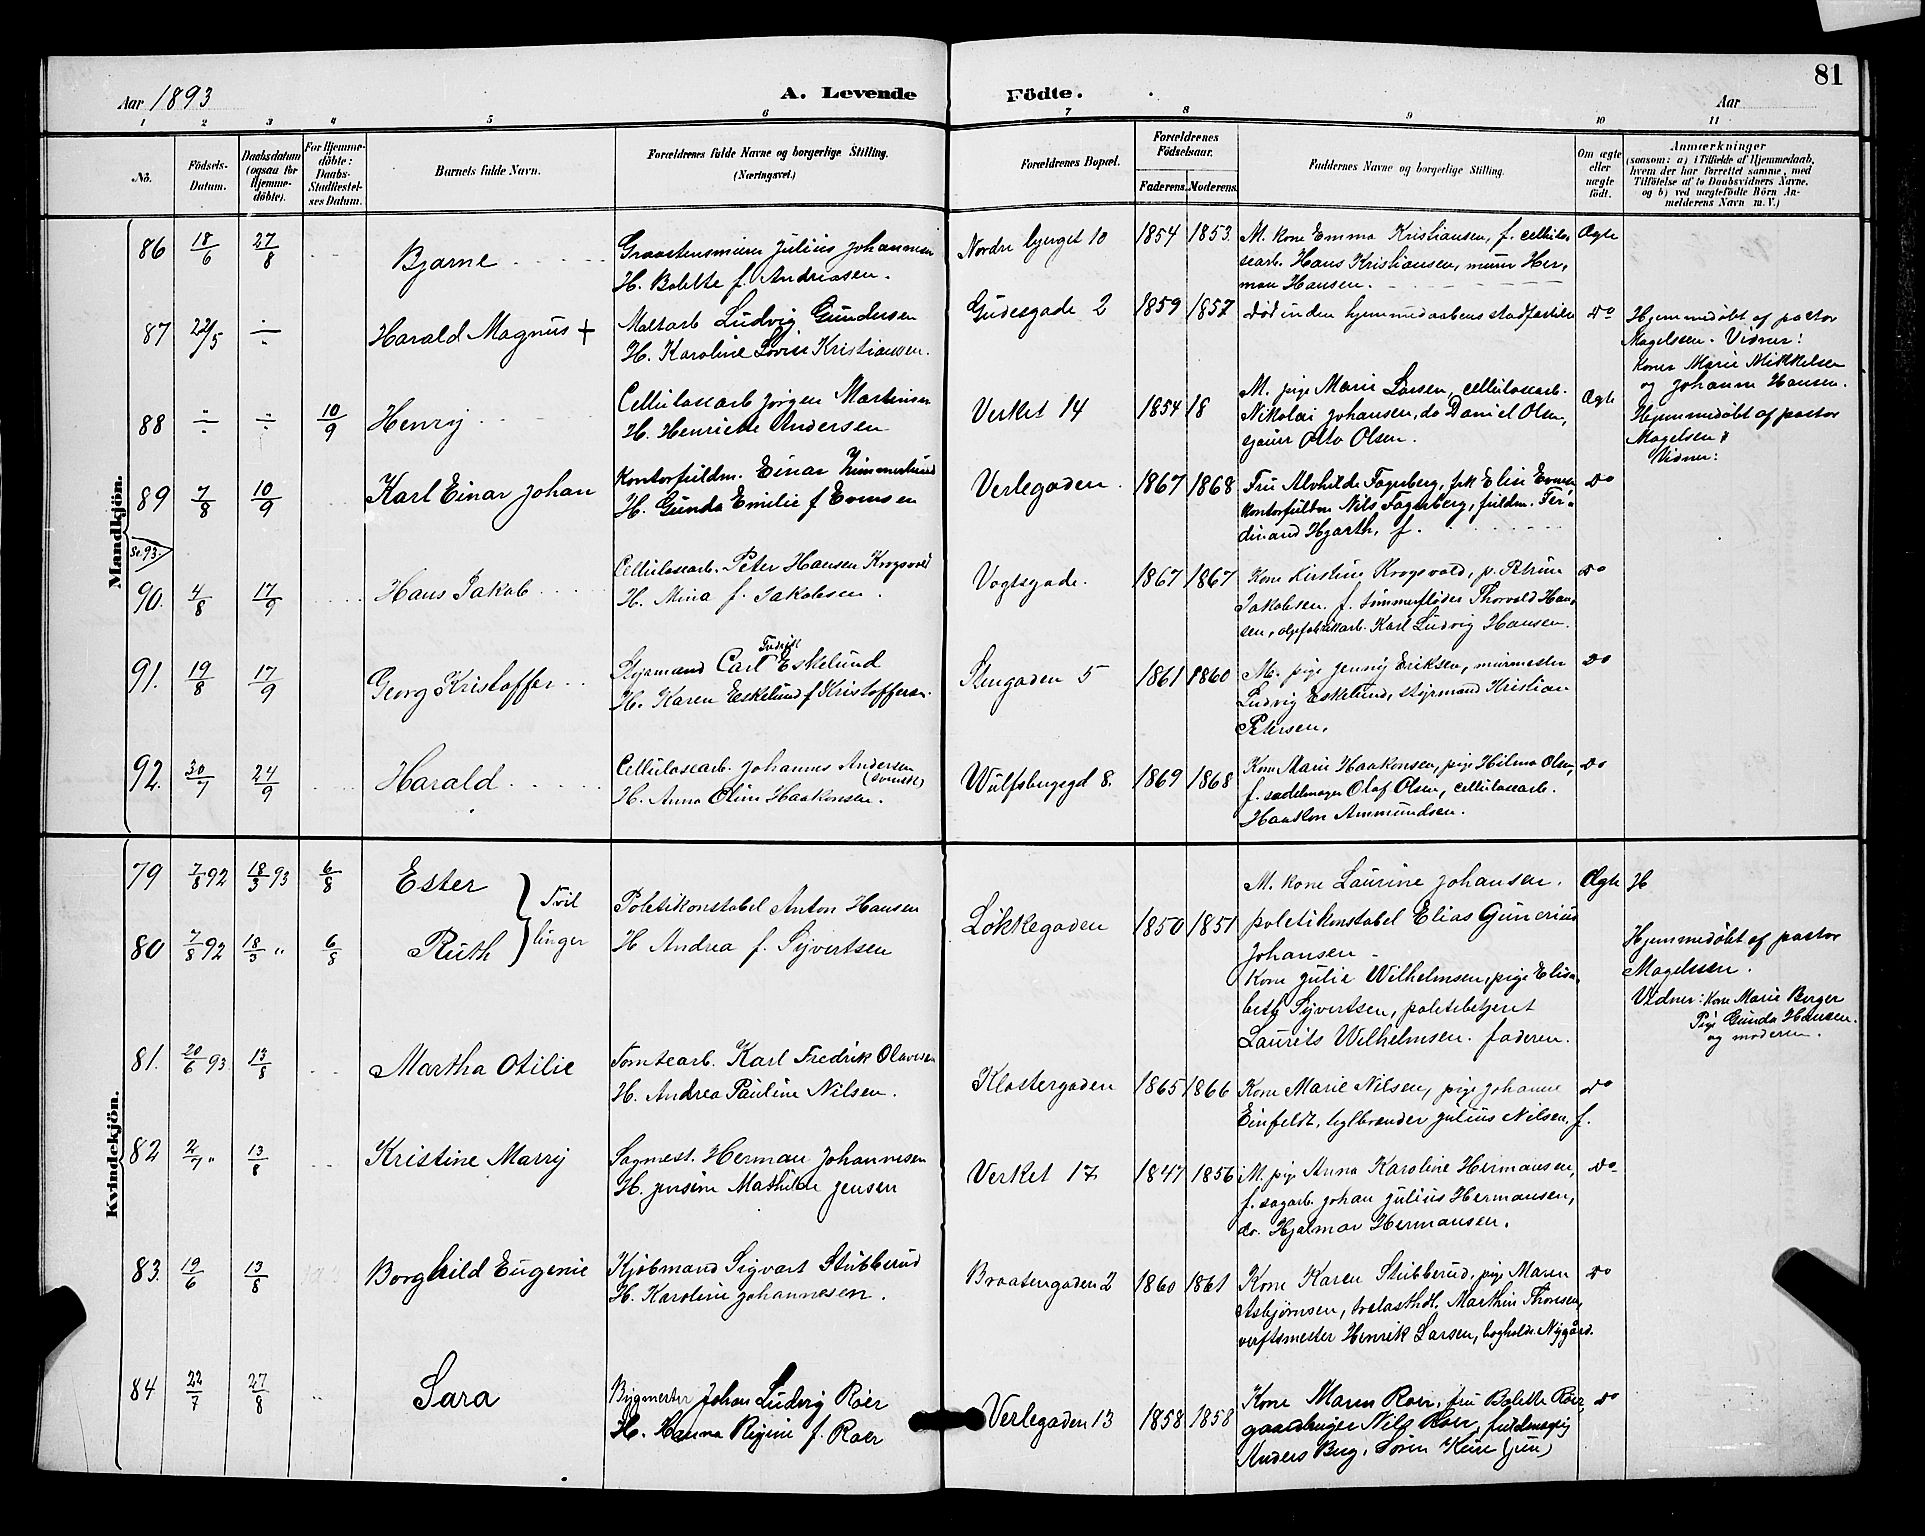 81
Aar 1893
A. Levende Födte.
Aar
1 2 3 4 5 6 7 8 9 10 11
No.
Födsels-Datum.
Daabsdatum (ogsaa for Hjemme-døbte).
For Hjemme-døbte: Daabs-Stadfæstel-ses Datum.
Barnets fulde Navn.
Forældrenes fulde Navne og borgerlige Stilling. (Næringsvei.)
Forældrenes Bopæl.
Forældrenes Födselsaar.
Faderens. Moderens.
Faddernes Navne og borgerlige Stilling.
Om ægte eller uægte født.
Anmærkninger
(saasom: a) i Tilfælde af Hjemmedaab,
hvem der har forrettet samme, med
Tilföielse af to Daabsvidners Navne,
og b) ved uægtefödte Börn An-
melderens Navn m. V.)
Mandkjön.
86 18/6 27/8 Bjarne
Julius Johannesen
H. Bolette f. Andreasen.
Nordre bjerget 10 1854 1853
M. Kone Emma Kristiansen, f. cellulo
searb. Hans Kristiansen, murer Her,
man Hansen.
Ægte
87 22/5 ÷ Harald Magnus +
Ludvig Gundersen
H. Karoline Lovise Kristiansen.
Gudesgade 2 1859 1857
død inden hjemmedaabens stadfestelse
Do
Hjemmedøbt af pastor
Magelssen. Vidner:
Koner Marie Mikkelsen
og Johanne Hansen.
88 ÷ ÷ 10/9 Henry
Cellulosearb Jørgen Martinsen
H. Henriette Andersen
Verket 14 1854 18
M. pige Marie Larsen, cellulosearb.
Nikolai Johansen, do Daniel Olsen,
Otto Olsen.
Ægte
Hjemmedøbt af pastor
Magelsen
Vidner:
89 7/8 10/9 Karl Einar Johan
Kontorfuldm. Einar
H. Gunda Emilie f Evensen
Verlegaden. 1867 1868
Fru Alvhilde Fagerberg, frk Elise Evensen
Kontorfuldm Nils Fagerberg, fuldm. Fer-
dinand Hjorth, f.
Do
Se 93.
90. 4/8 17/9 Hans Jakob
Cellulosearb. Peter Hansen Krogsvold
H. Mina f. Jakobsen.
Vogtsgade. 1867 1867
Kone Kirstine Krogsvold, p. Petrine
Jakobsen. f. tømmerfløder Thorvald Han,
sen, Karl Ludvig Hansen.
Do
91. 19/8 17/9 Georg Kristoffer
Fredrik
Styrmand Carl Eskelund
H. Karen Eskelund f Kristoffersen.
Stengaden 5 1861 1860
M. pige Jenny Eriksen, murmester
Ludvig Eskelund, styrmand Kristian
Petersen.
Do
92. 30/7 24/9 Harald
Cellulosearb. Johannes Andersen
(svensk)
H. Anna Oline Haakonsen.
Wulfsbergsgd 8. 1869 1868
Kone Marie Haakonsen, pige Hilma Olsen,
f. sadelmager Olaf Olsen, cellulosearb.
Haakon Ammundsen.
Do
Kvindekjön.
79 7/8 92 18/3 93 6/8 Ester
Tvil
linger
80 7/8 92 18/3 " 6/8 Ruth
Politikonstabel Anton Hansen
H. Andrea f. Syvertsen
Løkkegaden 1850 1851
M. kone Laurine Johansen.
politikonstabel Elias Gunerius
Johansen
Kone Julie Wilhelmsen, pige Elisa,
beth Syvertsen, politibetjent
Laurits Wilhelmsen. faderen.
Ægte
H
Hjemmedøbt af pastor
Magelssen.
Vidner: Kone Marie Berger
Pige Gunda Hansen.
og moderen.
81. 20/6 93 13/8 Martha Otilie
Tomtearb. Karl Fredrik Olavesen
H. Andrea Pauline Nilsen.
Klostergaden 1865 1866
Kone Marie Nilsen, pige Johanne
Einfeldt, teglbrænder Julius Nilsen, f.
Do
82 2/7 " 13/8 Kristine Marry
Sagmest. Herman Johannesen
H. Jensine Mathilde Jensen
Verket 17 1847 1856
M. pige Anna Karoline Hermansen,
f. sagarb. Johan Julius Hermansen,
do. Hjalmar Hermansen.
Do
83. 19/6 13/8 Borghild Eugenie
Kjøbmand Sigvart Stubberud
H. Karoline Johannesen.
Braatengaden 2 1860 1861
Kone Karen Stubberud, pige Maren
Asbjørnsen, trælasthdl. Marthin Thoresen,
verftsmester Henrik Larsen, bogholder Nygård.
Do
84 22/7 27/8 Sara
Bygmester Johan Ludvig Roer
H. Hanna Rigine f. Roer
Verlegaden 13 1858 1858
Kone Maren Roer, fru Bolette Roer
gaardbruger Nils Roer, fuldmægtig
Anders Berg, Søren (jun)
Do